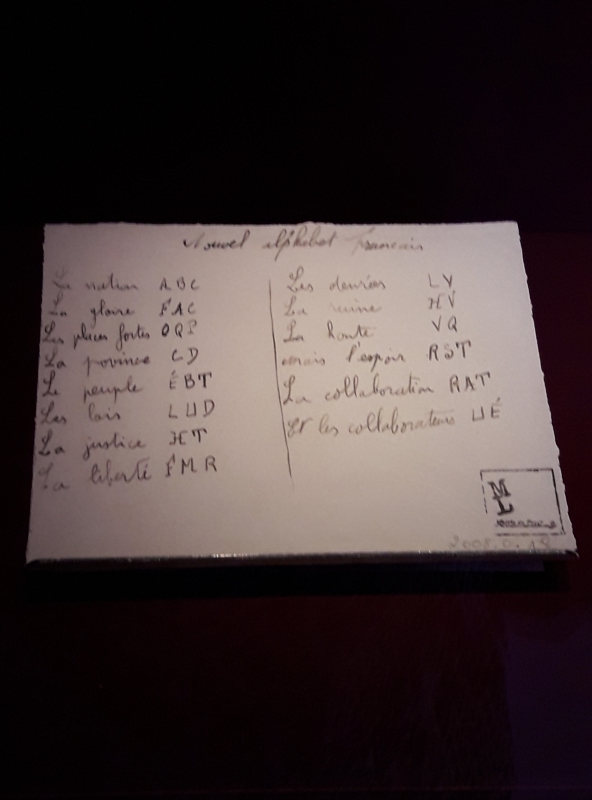 Nouvel alphabet Francais
La nation ABC
La gloire FAC
Les places fortes OQP
La province CD
Le peuple ÉBT
Les lois LUD
La justice HT
La liberté FMR
Les denrées LV
La ruine HV
La honte VQ
mais l'espoir RST
La collaboration RAT
Et les collaborateurs UÉ
ML